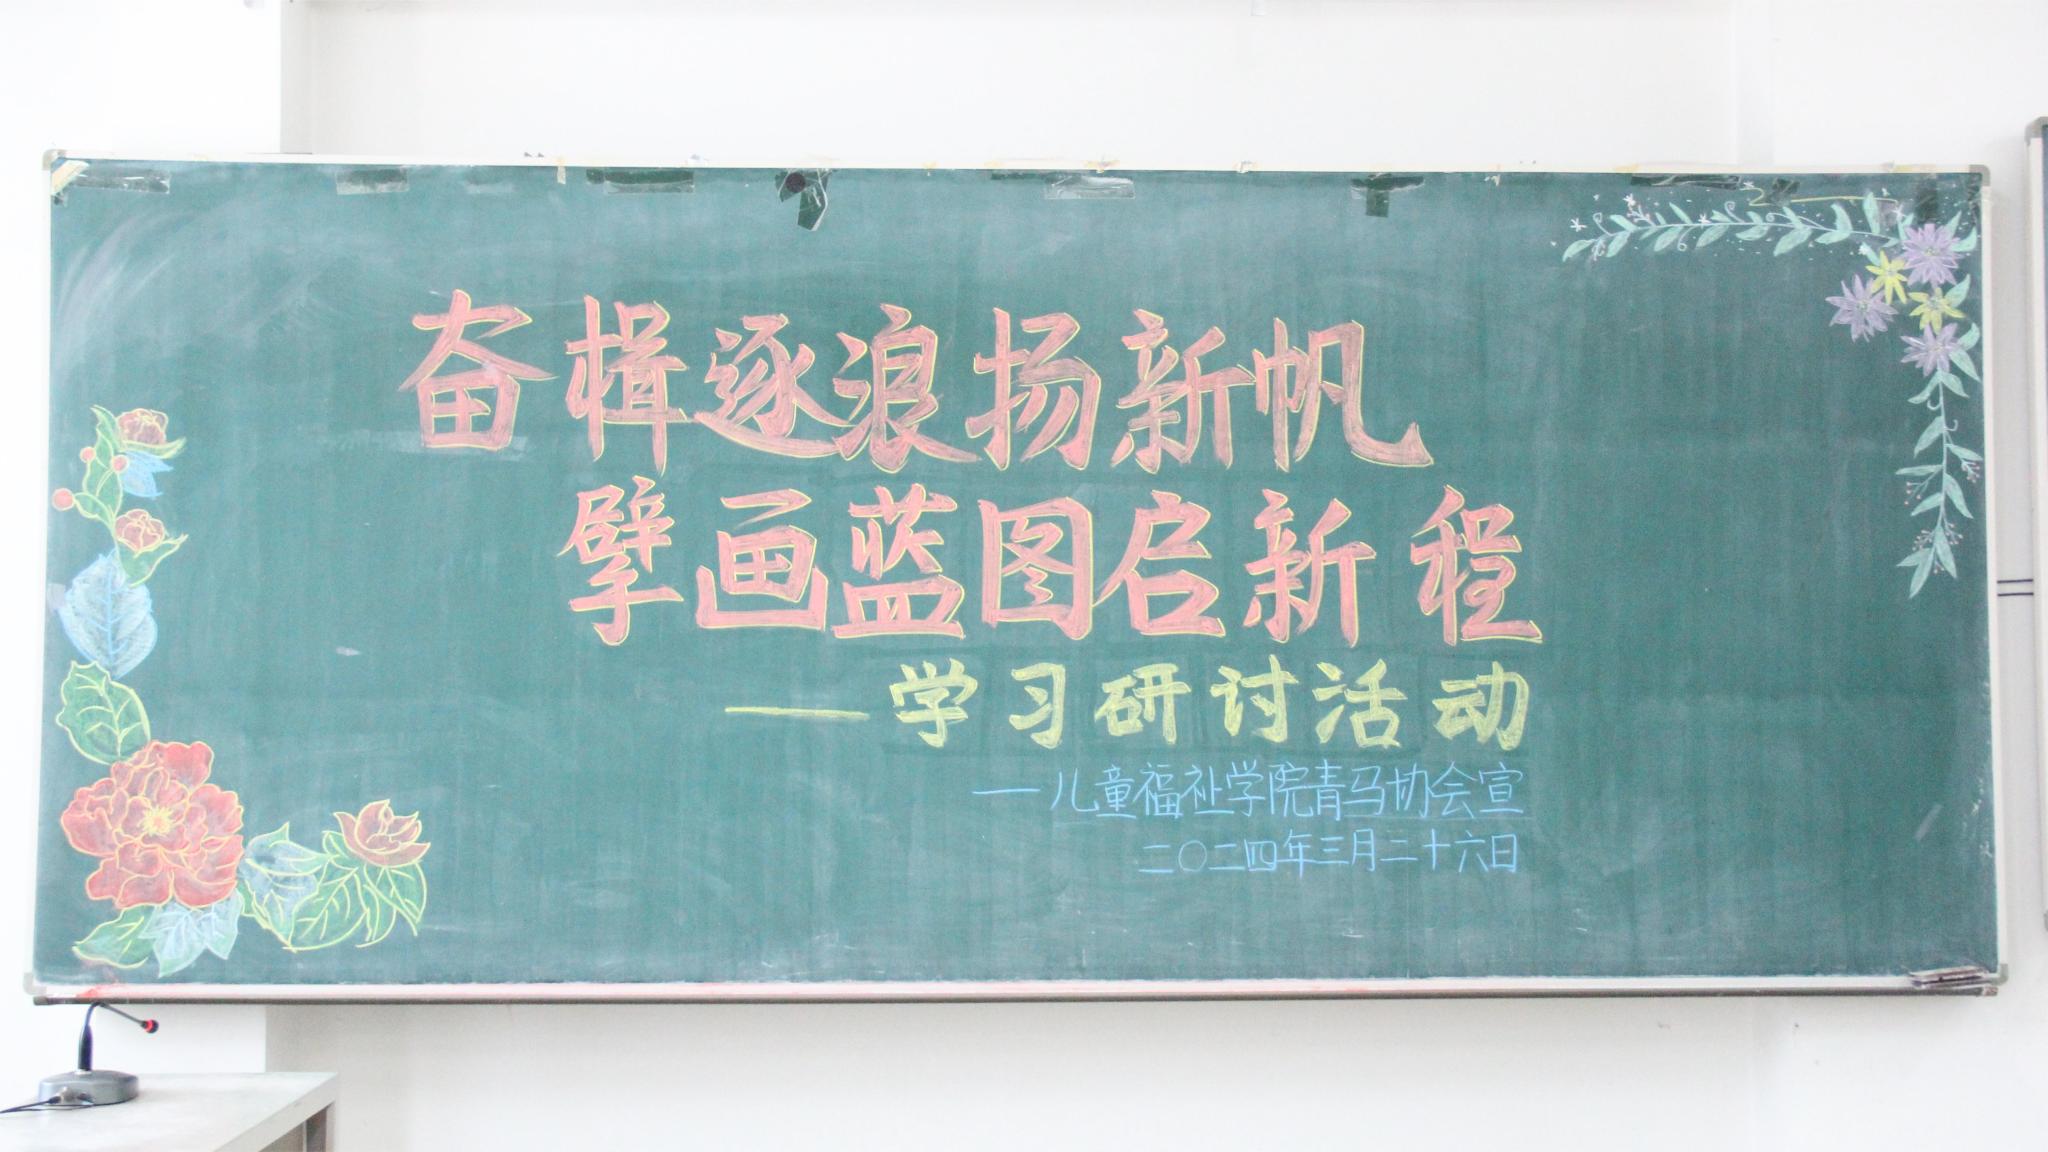 奋楫逐浪扬新帆
擘画蓝图启新程
——学习研讨活动
—儿童福祉学院青马协会宣
二〇二四年三月二十六日